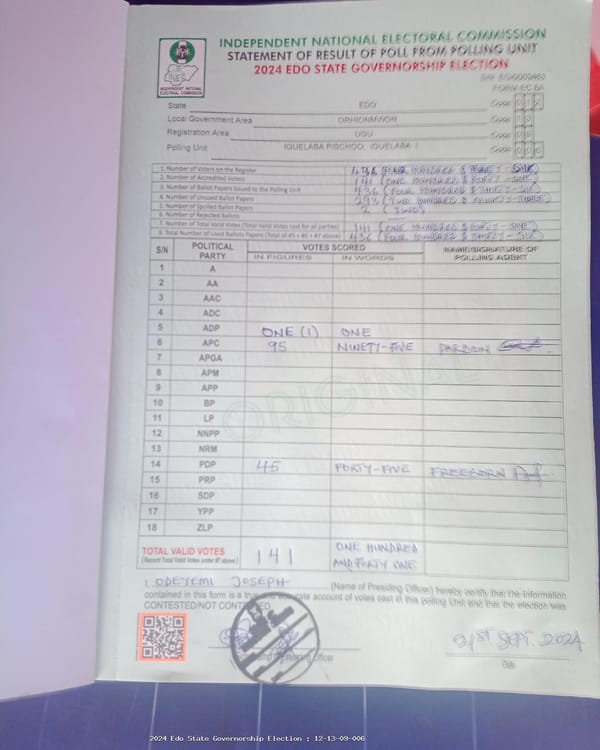 INDEPENDENT NATIONAL ELECTORAL COMMISSION
STATEMENT OF RESULT OF POLL FROM POLLING UNIT
2024 EDO STATE GOVERNORSHIP ELECTION
FORM EC 8A
INDEPENDENT NATIONAL ELECTORAL COMMISSION
State EDO Code
Local Government Area ORHIONMWON Code
Registration Area UGU Code
Polling Unit IGUELABA PISCHOO, IGUELABA I Code
1. Number of Voters on the Register 436 (FOUR HUNDRED & THIRTY-SIX)
2. Number of Accredited Voters 141 (ONE HUNDRED & FORTY-ONE)
3. Number of Ballot Papers Issued to the Polling Unit 436 (FOUR HUNDRED & THIRTY-SIX)
4. Number of Unused Ballot Papers 293 (TWO HUNDRED & NINETY-THREE)
5. Number of Spoiled Ballot Papers 2 (TWO)
6. Number of Rejected Ballots
7. Number of Total Valid Votes (Total Valid Votes cast for all parties) 141 (ONE HUNDRED & FORTY-ONE)
8. Total Number of Used Ballots Papers (Total of #5 + #6 + #7 above) 436 (FOUR HUNDRED & THIRTY-SIX)
S/N POLITICAL PARTY VOTES SCORED NAME/SIGNATURE OF POLLING AGENT
IN FIGURES IN WORDS
1 A
2 AA
3 AAC
4 ADC
5 ADP ONE (1) ONE
6 APC 95 NINETY-FIVE
7 APGA
8 APM
9 APP
10 BP
11 LP
12 NNPP
13 NRM
14 PDP 45 FORTY-FIVE FREEBORN
15 PRP
16 SDP
17 YPP
18 ZLP
ORIGINAL
TOTAL VALID VOTES 141 ONE HUNDRED
(Record Total Valid Votes under #7 above) AND FORTY ONE
I, ODEYEMI JOSEPH (Name of Presiding Officer) hereby certify that the information
contained in this form is a true and accurate account of votes cast in this polling Unit and that the election was
CONTESTED/NOT CONTESTED
21st Sept. 2024
Officer Date
2024 Edo State Governorship Election : 12-13-09-006